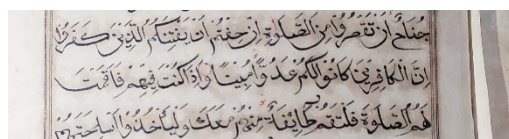 جُنَاحٌ أَنْ تَقْصُرُوا مِنَ الصَّلٰوةِ اِنْ خِفْتُمْ اَنْ يَفْتِنَكُمُ الَّذِيْنَ كَفَرُوْا
اِنَّ الْكَافِرِيْنَ كَانُوْا لَكُمْ عَدُوًّا مُبِيْنًا وَاِذَا كُنْتَ فِيْهِمْ فَاَقَمْتَ
لَهُمُ الصَّلٰوةَ فَلْتَقُمْ طَايِٕفَةٌ مِنْهُمْ مَعَكَ وَلْيَأْخُذُوْا اَسْلِحَتَهُمْ